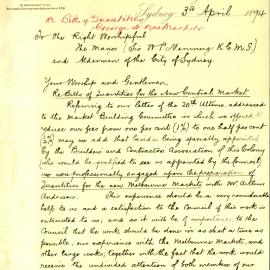 Re Bills of Quantities
George St Markets
Sydney 3rd April 1894
To the Right Worshipful
The Mayor (Sir W P Manning K.C.M.G)
and Aldermen of the City of Sydney.
Your Worship and Gentlemen,
Re Bills of Quantities for the New Central Market
Referring to our letter of the 20th Ultimo, addressed
to the Market Building Committee in which we offered to
reduce our fees from one per cent (1%) to one half per cent
(½%) we may add that besides being specially appointed
by the Builders and Contractors Association of this Colony
who would be gratified to see us appointed by the Council,
we were professionally engaged upon the preparation of
Quantities for the new Melbourne Markets with Mr
Anderson. This experience should be a very considerable
help to us and a satisfaction to the Council if this work is
entrusted to us, and as it will be of importance to the
Council that the work should be done in as short a time as
possible, our experience with the Melbourne Markets and
other large works, together with the fact that the work would
receive the undivided attention of both members of our